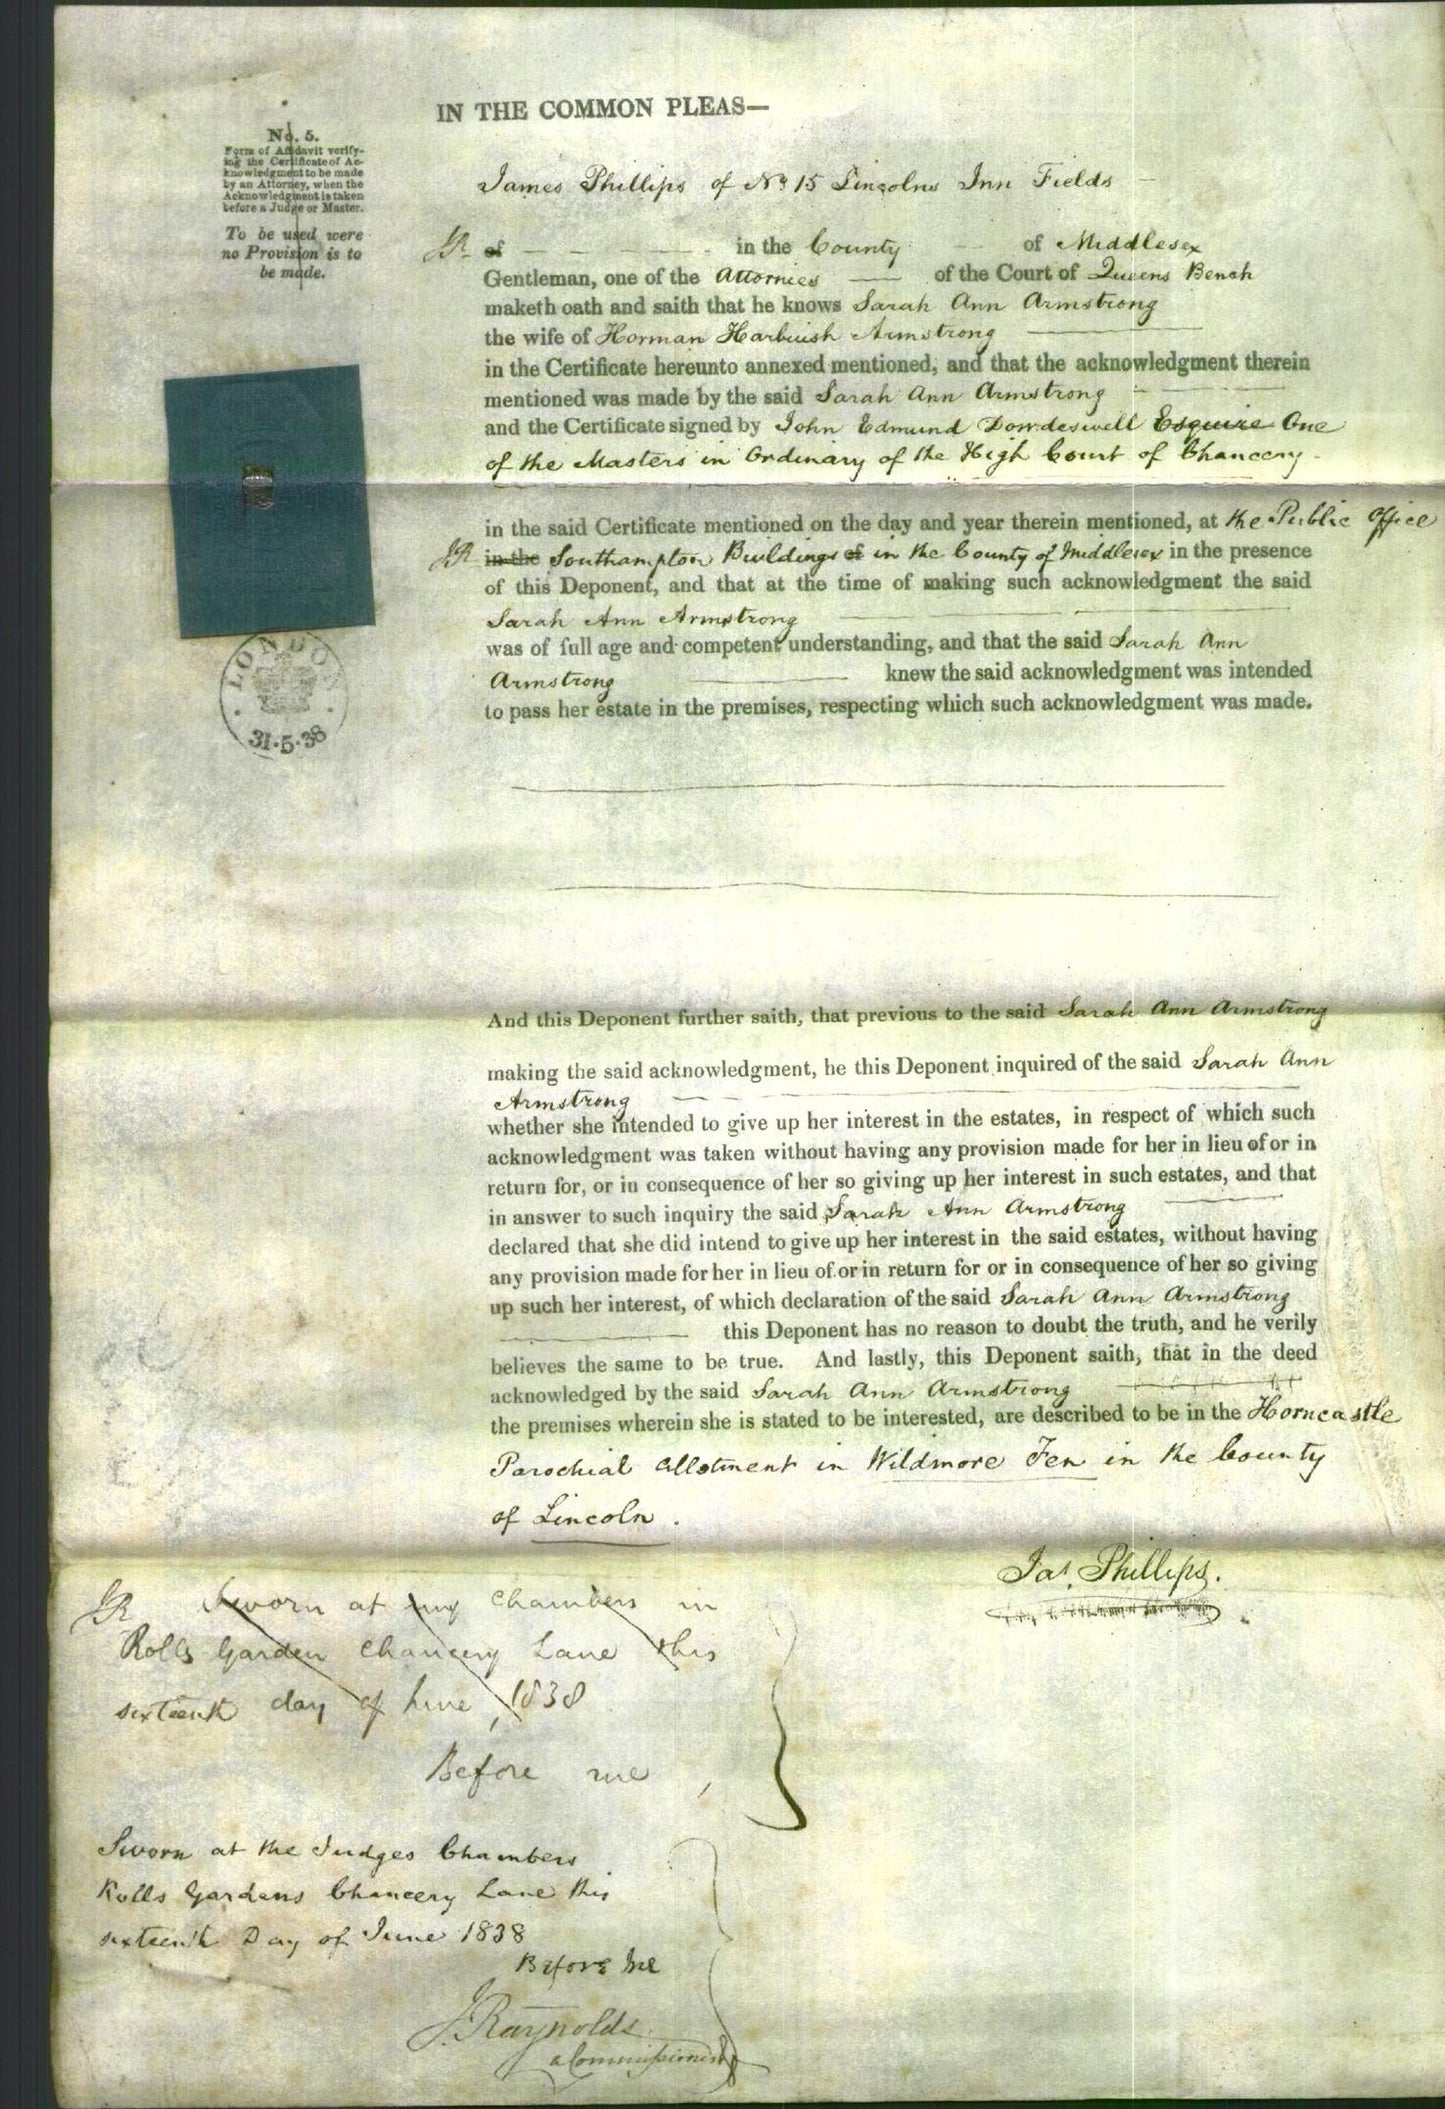 IN THE COMMON PLEAS—
No. 5.
Form of Affidavit verify-
ing the Certificate of Ac-
knowledgment to be made
by an Attorney, when the
Acknowledgment is taken
before a Judge or Master.
To be used were
no Provision is to
be made.
James Phillips of No 15 Lincolns Inn Fields
JR of in the County of Middlesex
Gentleman, one of the Attornies of the Court of Queens Bench
maketh oath and saith that he knows Sarah Ann Armstrong
the wife of Horman Armstrong
in the Certificate hereunto annexed mentioned, and that the acknowledgment therein
mentioned was made by the said Sarah Ann Armstrong
and the Certificate signed by John Edmund Dowdeswell Esquire One
of the Masters in Ordinary of the High Court of Chancery
in the said Certificate mentioned on the day and year therein mentioned, at the Public Office
JR in the Southampton Buildings of in the County of Middlesex in the presence
of this Deponent, and that at the time of making such acknowledgment the said
Sarah Ann Armstrong
was of full age and competent understanding, and that the said Sarah Ann
Armstrong knew the said acknowledgment was intended
to pass her estate in the premises, respecting which such acknowledgment was made.
LONDON
31·5·38
And this Deponent further saith, that previous to the said Sarah Ann Armstrong
making the said acknowledgment, he this Deponent inquired of the said Sarah Ann
Armstrong
whether she intended to give up her interest in the estates, in respect of which such
acknowledgment was taken without having any provision made for her in lieu of or in
return for, or in consequence of her so giving up her interest in such estates, and that
in answer to such inquiry the said Sarah Ann Armstrong
declared that she did intend to give up her interest in the said estates, without having
any provision made for her in lieu of or in return for or in consequence of her so giving
up such her interest, of which declaration of the said Sarah Ann Armstrong
this Deponent has no reason to doubt the truth, and he verily
believes the same to be true. And lastly, this Deponent saith, that in the deed
acknowledged by the said Sarah Ann Armstrong
the premises wherein she is stated to be interested, are described to be in the Horncastle
Parochial allotment in Wildmore Fen in the County
of Lincoln.
Jas. Phillips.
JR Sworn at my Chambers in
Rolls Garden Chancery Lane this
sixteenth day of June, 1838
Before me,
Sworn at the Judges Chambers
Rolls Gardens Chancery Lane this
sixteenth Day of June 1838
Before Me
J. Raynolds
a Commissioner